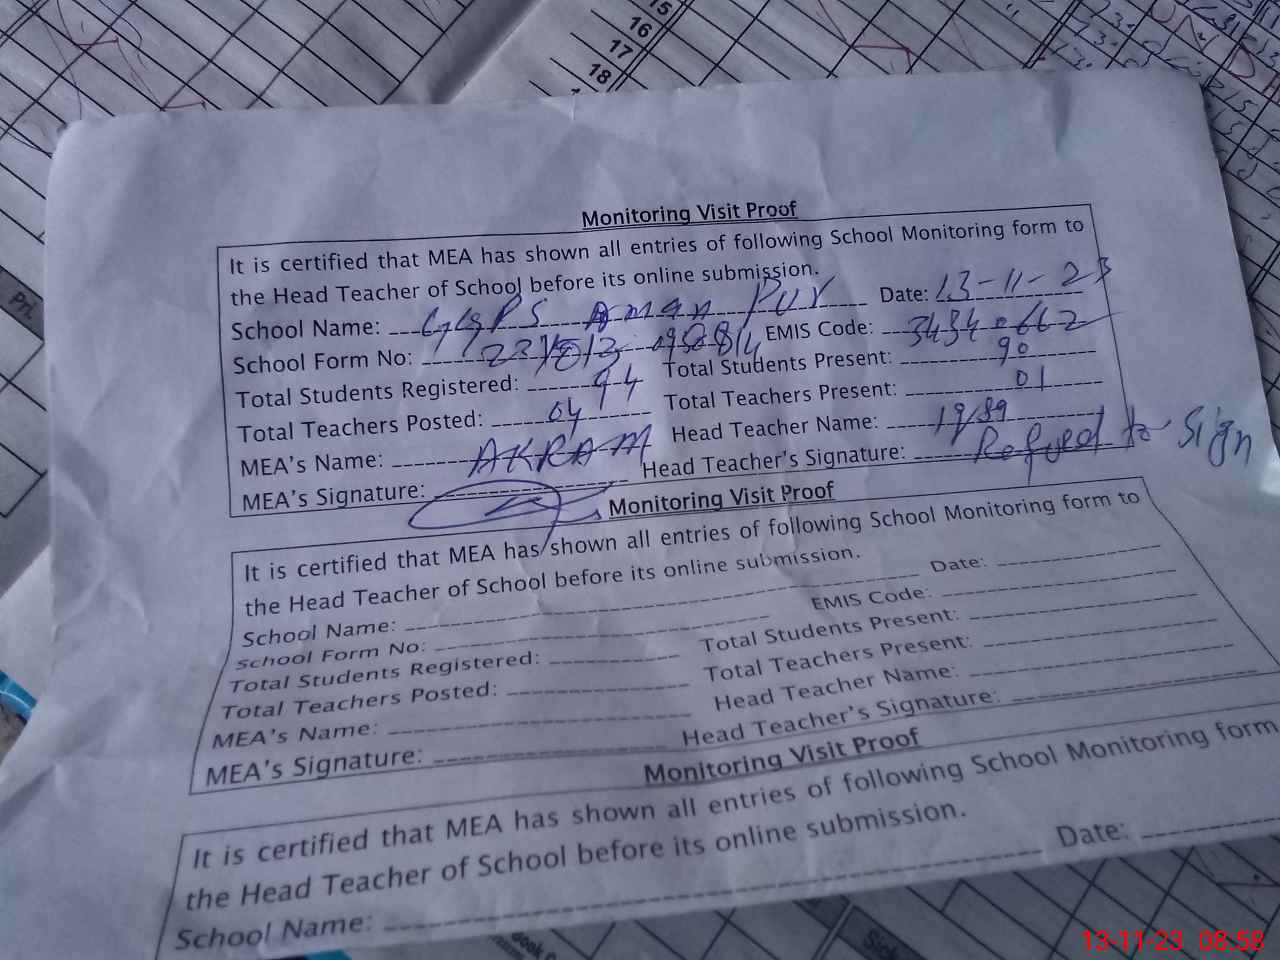 15
16
17
18
Pri.
Monitoring Visit Proof
It is certified that MEA has shown all entries of following School Monitoring form to
the Head Teacher of School before its online submission.
School Name: GGPS Aman Pur Date: 13-11-23
School Form No: EMIS Code: 34340662
Total Students Registered: 94 Total Students Present: 90
Total Teachers Posted: 04 Total Teachers Present: 01
MEA's Name: AKRAM Head Teacher Name:
MEA's Signature: Head Teacher's Signature: Refused to Sign
Monitoring Visit Proof
It is certified that MEA has shown all entries of following School Monitoring form to
the Head Teacher of School before its online submission.
School Name: Date:
School Form No: EMIS Code:
Total Students Registered: Total Students Present:
Total Teachers Posted: Total Teachers Present:
MEA's Name: Head Teacher Name:
MEA's Signature: Head Teacher's Signature:
Monitoring Visit Proof
It is certified that MEA has shown all entries of following School Monitoring form
the Head Teacher of School before its online submission.
School Name: Date:
13-11-23 08:58